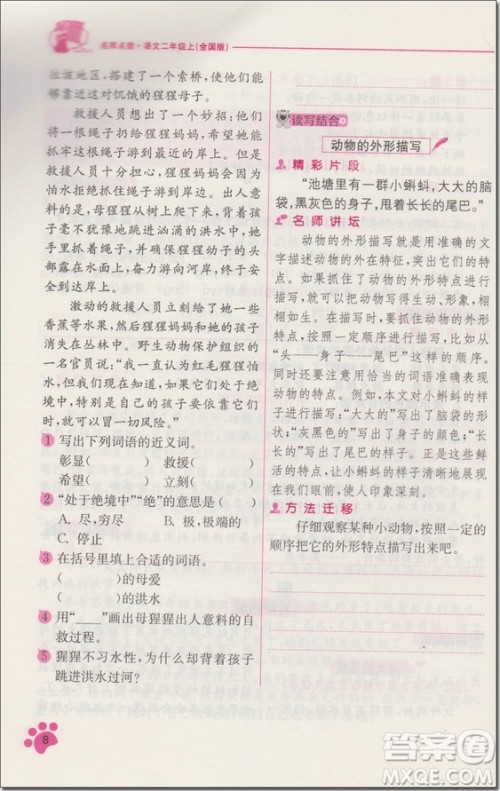 名师点拨·语文二年级上(全国版)
拉该地区，搭建了一个索桥，使它们能
够靠近这对饥饿的猩猩母子。
救援人员想出了一个妙招：他们将
一根绳子扔给猩猩妈妈，希望她能
抓牢这根绳子游到最近的岸上。但
救援人员十分担心，猩猩妈妈会因为
怕水，而不敢抓住绳子游到岸上。出
人意料的是，猩猩妈妈抓住绳子，孩
子像平时那样爬上来抓牢后，它便
毫不犹豫地跳进汹涌的洪水中，她
手里抓着绳子，始终让猩猩幼子的头
部露在水面上，奋力游向河岸，终于安
全到达岸上。
激动的救援人员立刻给了她一些
香蕉等水果，然后猩猩妈妈和她的孩子
消失在丛林中。野生动物保护组织的
一名官员说：“我一直认为红毛猩猩怕
水，但我们现在知道，如果它们处于绝
境中，特别是自己的孩子要依靠它们
时，它们就可以冒一切风险。”
1 写出下列词语的近义词。
彰显( ) 救援( )
希望( ) 立刻( )
2 “处于绝境中”“绝”的意思是( )
A. 尽，穷尽 B. 极，极端的
C. 停止
3 在括号里填上合适的词语。
( )的母爱
( )的洪水
4 用“____”画出母猩猩出人意料的自
救过程。
5 猩猩不习水性，为什么却背着孩子
跳进洪水过河？
8
读写结合
动物的外形描写
精彩片段
“池塘里有一群小蝌蚪，大大的脑
袋，黑灰色的身子，甩着长长的尾巴。”
名师讲坛
动物的外形描写，是用准确的文
字描述动物的外在特征，突出它们的特
点。如果抓住了动物的外形特点进行
描写，就可以把动物写得生动、形象，栩
栩如生。在描写时，要抓住动物的外形
特点，按照一定顺序进行描写，比如从
“头—身子—尾巴”这样的顺序描写。
同时还要用恰当的词语准确地描写动
物的外形，例如，本文对小蝌蚪的外形
描写：“大大的”写出了脑袋的形状，
“灰黑色的”写出了身子的颜色，“长
长的”写出了尾巴的特点。正是这些鲜
活的描写，让小蝌蚪的样子清晰地展现
在我们眼前，使人印象深刻。
方法迁移
仔细观察某种小动物，按照一定的
顺序把它的外形特点描写出来吧。
答案圈
MXQE.COM